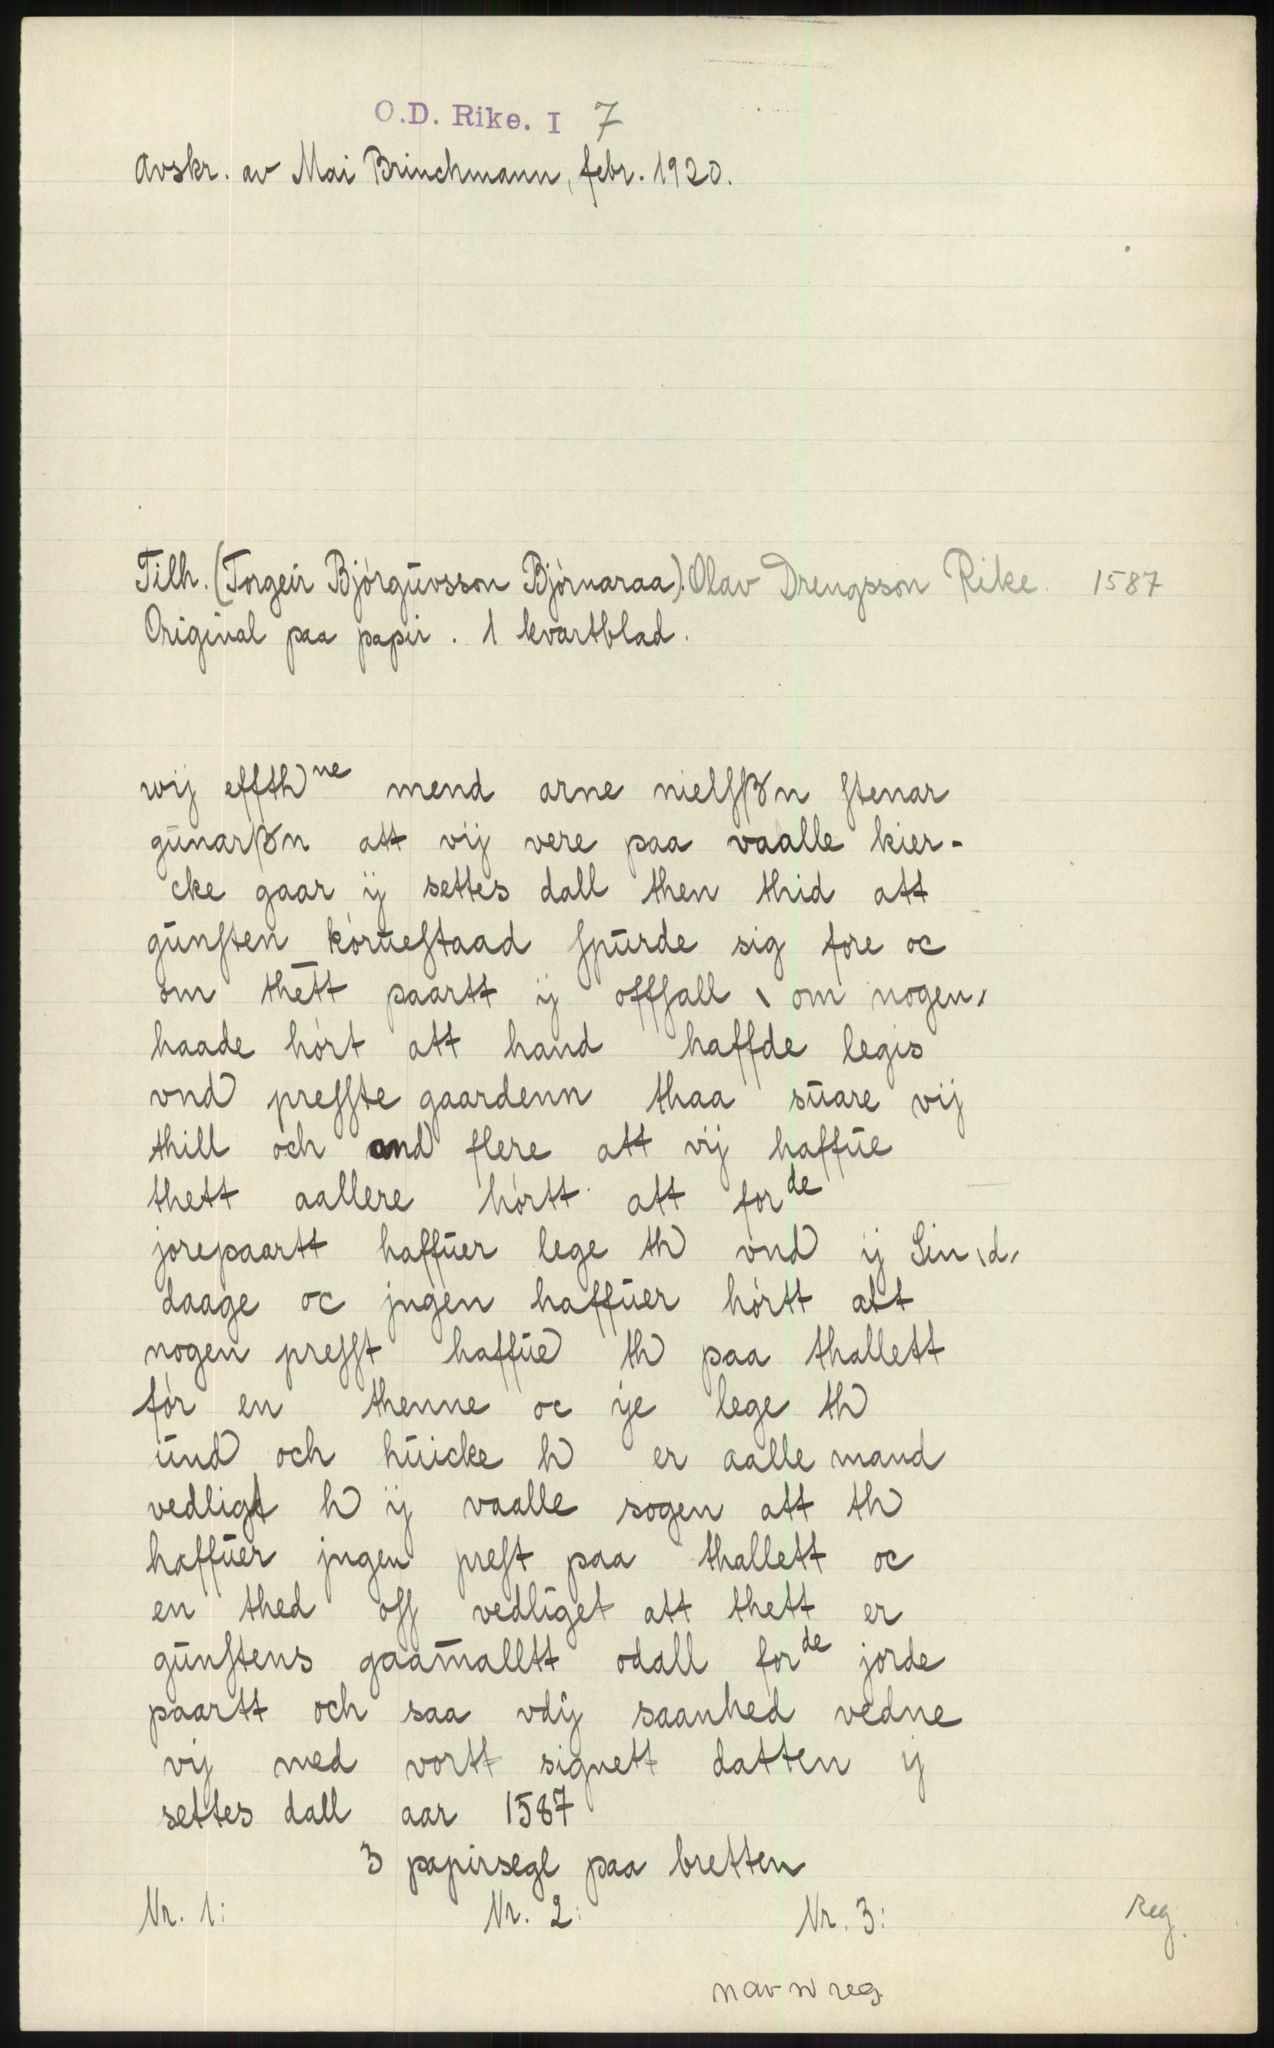 O.D. Rike. I 7
Avskr. av Mai Brinchmann, febr. 1920.
Tilh. (Torgeir Bjórgŭvsson Bjórnaraa). Olav Drengsson Rike. 1587
Original paa papir. 1 kvartblad.
wij effth ne mend arne nielſßn ſtenar
gŭnarßn att vij vere paa vaalle kier-
cke gaar ij settes dall then thid att
gŭnſten kórŭeſtaad ſpŭrde sig fore oc
om thett paartt ij offſall \ om nogen,
haade hórt att hand haffde legis
vnd preſſte gaardenn thaa sŭare vij
thill och and flere att vij haffŭe
thett aallere hórtt att for de
jorepaartt haffŭer lege th vnd ij Sin \d,
daage oc jngen haffŭer hórtt att
nogen preſſt haffŭe th paa thallett
fór en thenne oc ije lege th
ŭnd och hŭicke h er aalle mand
vedligt h ij vaalle sogen att th
haffŭer jngen preſt paa thallett oc
en thed oſſ vedliget att thett er
gŭnſtens gaamalltt odall for de jorde
paartt och saa vdij saanhed vedne
vij med vortt signett datten ij
settes dall aar 1587
3 papirsegl paa bretten
Nr. 1: Nr. 2: Nr. 3:
Reg.
navnreg.